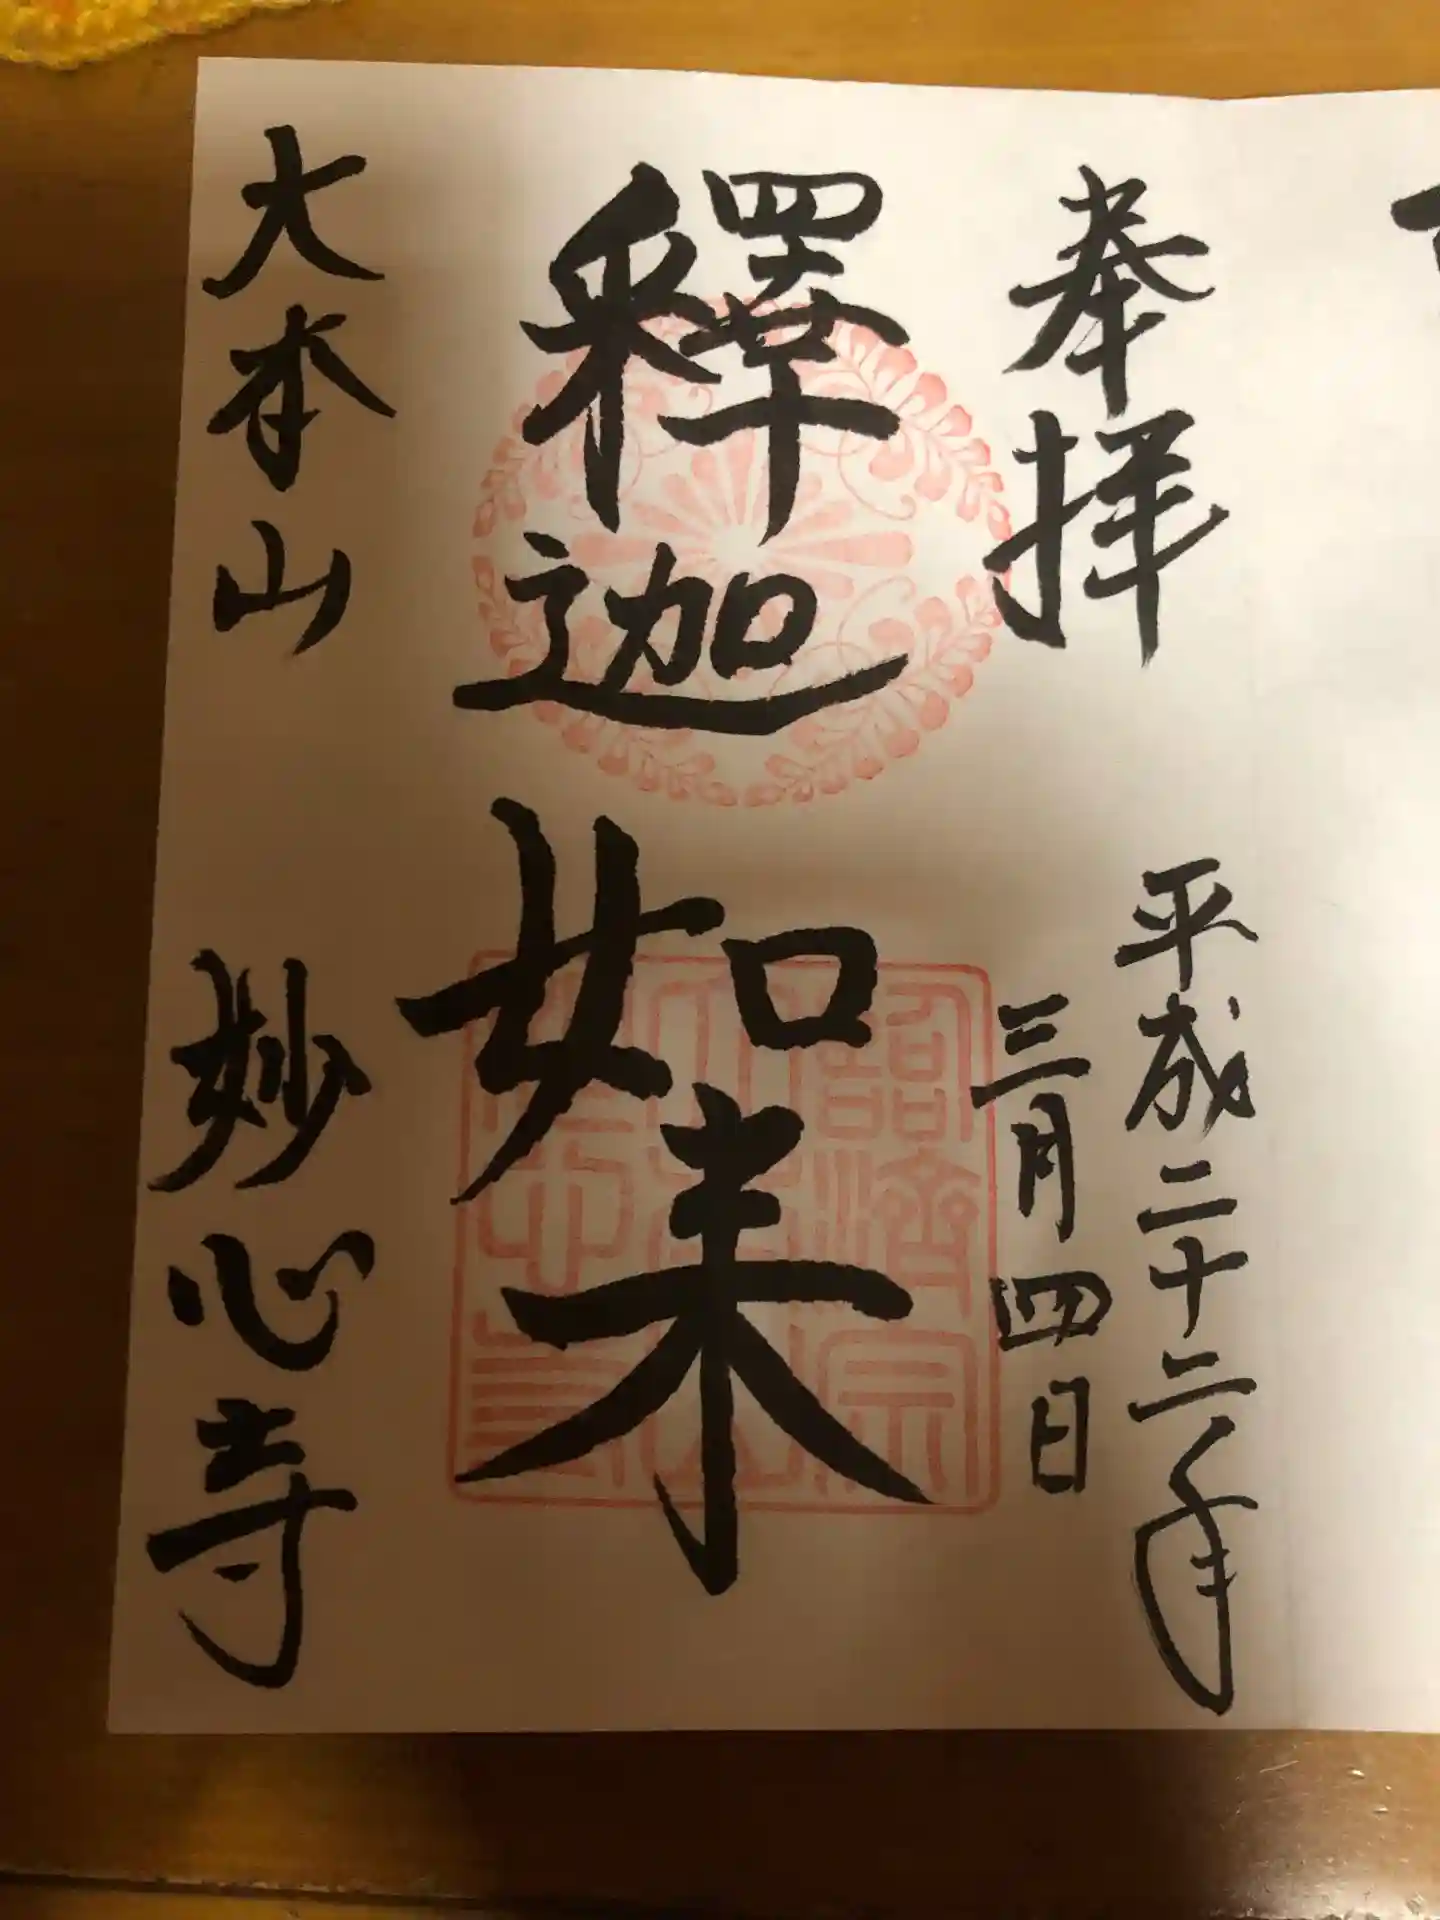 奉拝
平成二十二年
三月四日
釋迦如来
臨濟宗
大本山 妙心寺